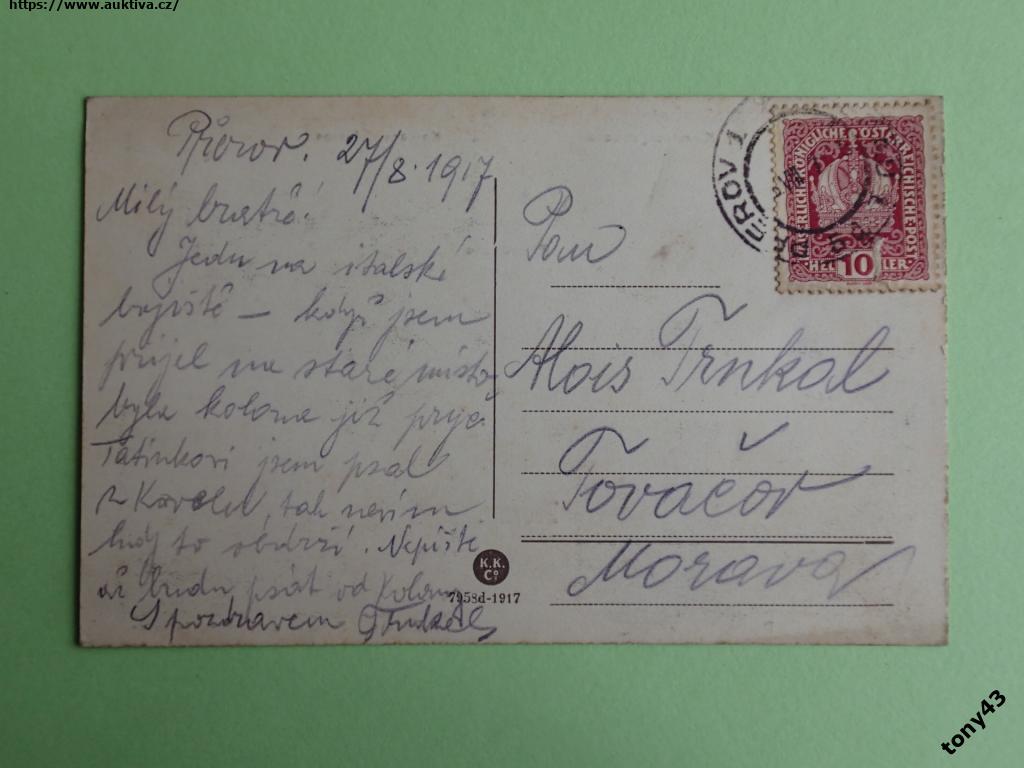 https://www.auktiva.cz/
Přerov. 27/8. 1917
Milý bratře!
Jedu na italské
bojiště – když jsem
přijel na staré místo
byla kolona již pryč.
Tatínkovi jsem psal
z Kovelu, tak nevím
kdy to obdrží. Nepište
až budu psát od Kolony
S pozdravem
Pan
Alois Trnkal
Tovačov
Morava
PREROV 1
KAISERLICHE KÖNIGLICHE ÖSTERREICHISCHE POST
HELLER 10 HELLER
K.K.
Co
7958d-1917
tony43